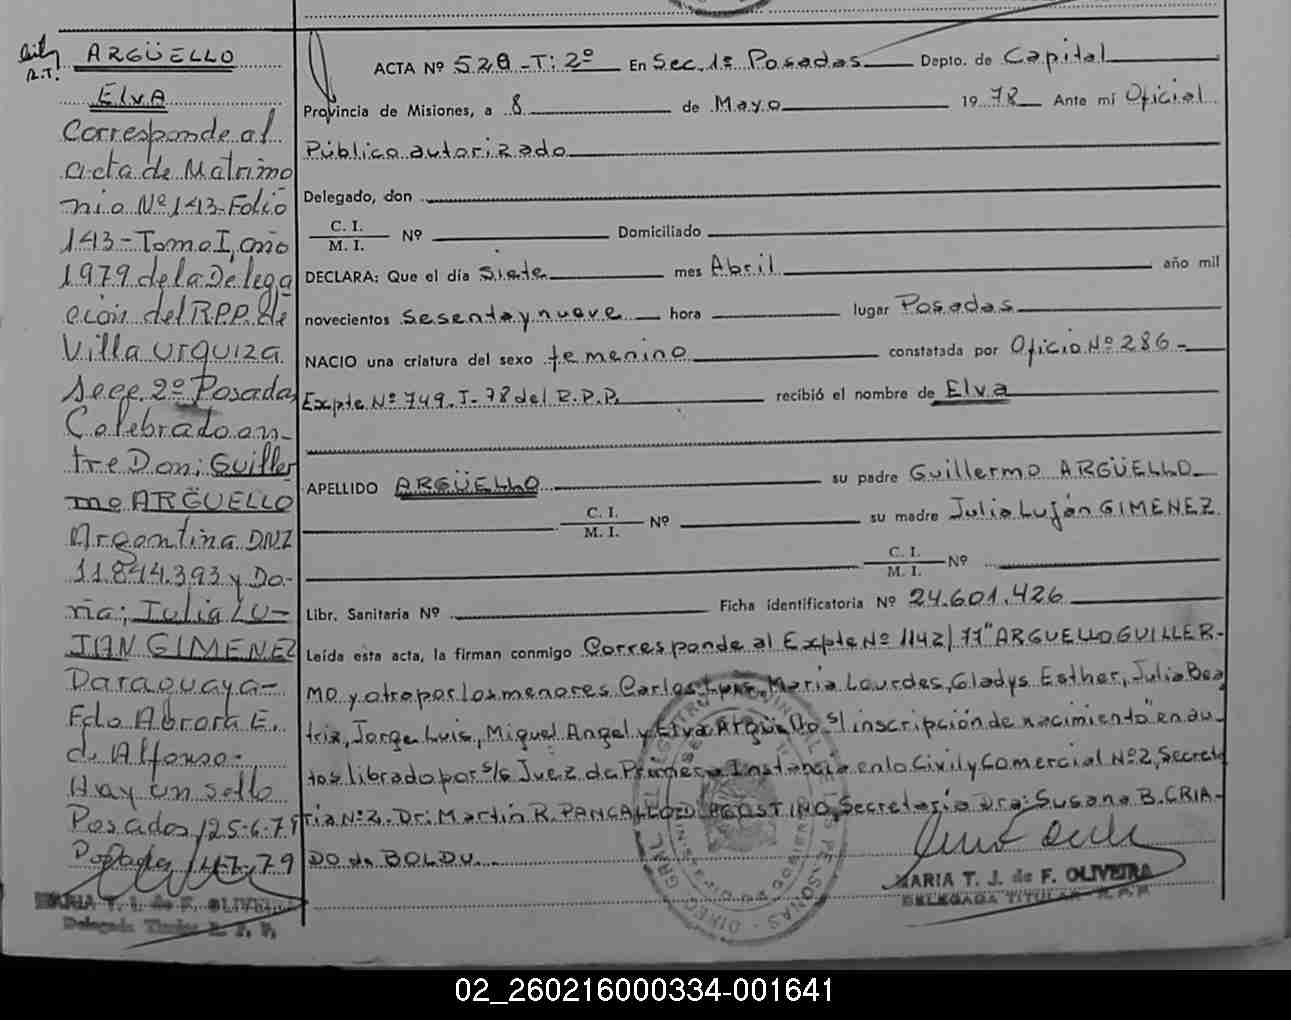 ARGÜELLO
R.T.
ElvA
Corresponde al
acta de Matrimo
nio Nº 143-Folio
143-Tomo I, año
1979 de la Delega
ción del R.P.P. de
Villa Urquiza
Secc. 2º Posadas
Celebrado en-
tre Don; Guiller
mo ARGÜELLO
Argentina DNI
11.844.393 y Do-
ña; Julia LU-
JAN GIMENEZ
Paraguaya-
Fdo Aurora E.
de Alfonso-
Hay un sello
Posadas, 25-6-79
Posadas 4-7-79
MARIA T. J. de F. OLIVEIRA
Delegada Titular R. P. P.
ACTA Nº 529-T: 2º En Sec. 1ª Posadas Depto. de Capital
Provincia de Misiones, a 8 de Mayo 19 78 Ante mí Oficial
Público autorizado
Delegado, don
C. I.
M. I. Nº Domiciliado
DECLARA: Que el día Siete mes Abril año mil
novecientos sesenta y nueve hora lugar Posadas
NACIO una criatura del sexo femenino constatada por Oficio Nº 286-
Expte Nº 749. J-78 del R.P.P. recibió el nombre de Elva
APELLIDO ARGÜELLO su padre Guillermo ARGÜELLO
C. I.
M. I. Nº su madre Julia Luján GIMENEZ
C. I.
M. I. Nº
Libr. Sanitaria Nº Ficha identificatoria Nº 24.601.426
Leída esta acta, la firman conmigo Corresponde al Expte Nº 1142/77 "ARGUELLO GUILLER-
MO y otro por los menores Carlos Luis, Maria Lourdes, Gladys Esther, Julia Bea
triz, Jorge Luis, Miguel Angel y Elva Argüello s/ inscripción de nacimiento" en au-
tos librado por s/s Juez de Primera Instancia en lo Civil y Comercial Nº 2, Secreta
ria Nº 2. Dr: Martin R. PANCALLO D'AGOSTINO, Secretaria Dra: Susana B. CRIA-
DO de BOLDU.
MARIA T. J. de F. OLIVEIRA
DELEGADA TITULAR R. P. P.
02_260216000334-001641